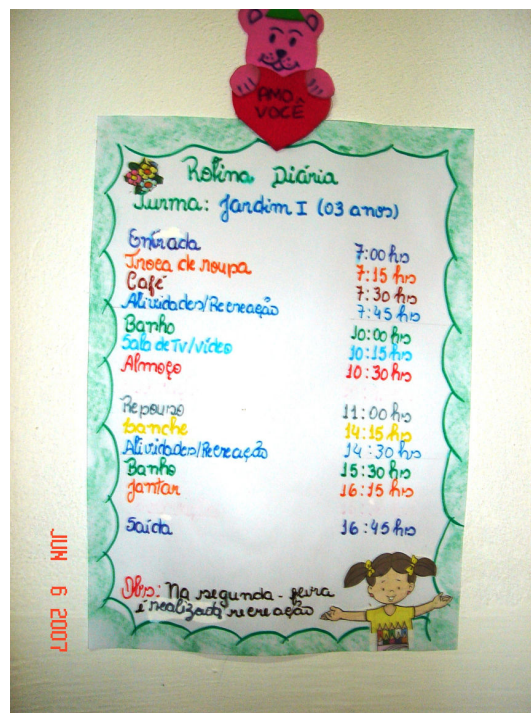 AMO
VOCÊ
Rotina Diária
Turma: Jardim I (03 anos)
Entrada 7:00 hrs
Troca de roupa 7:15 hrs
Café 7:30 hrs
Atividades/Recreação 7:45 hrs
Banho 10:00 hrs
Sala de TV/vídeo 10:15 hrs
Almoço 10:30 hrs
Repouso 11:00 hrs
Lanche 14:15 hrs
Atividades/Recreação 14:30 hrs
Banho 15:30 hrs
Jantar 16:15 hrs
Saída 16:45 hrs
Obs: Na segunda-feira
é realizada recreação
JUN 6 2007